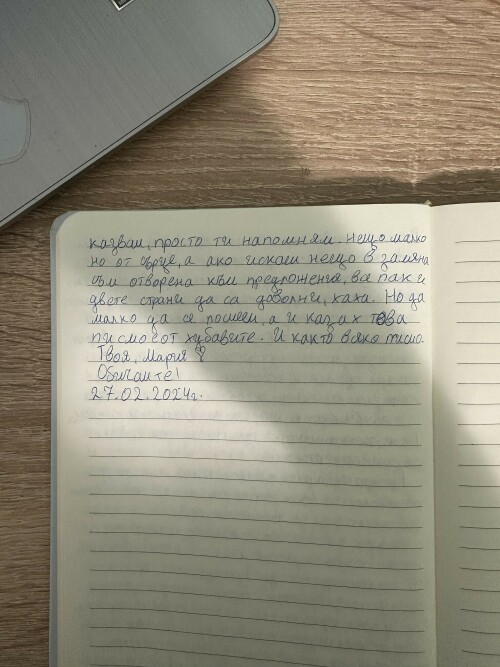 казвам, просто ти напомням. Нещо малко
но от сърце, а ако искаш нещо в замяна
съм отворена към предложения, все пак и
двете страни да са доволни, хаха. Но да
малко да се посмеем, а и казах това
писмо е от хубавите. И както всяко писмо.
Твоя, Мария
Обичамте!
27.02.2024г.